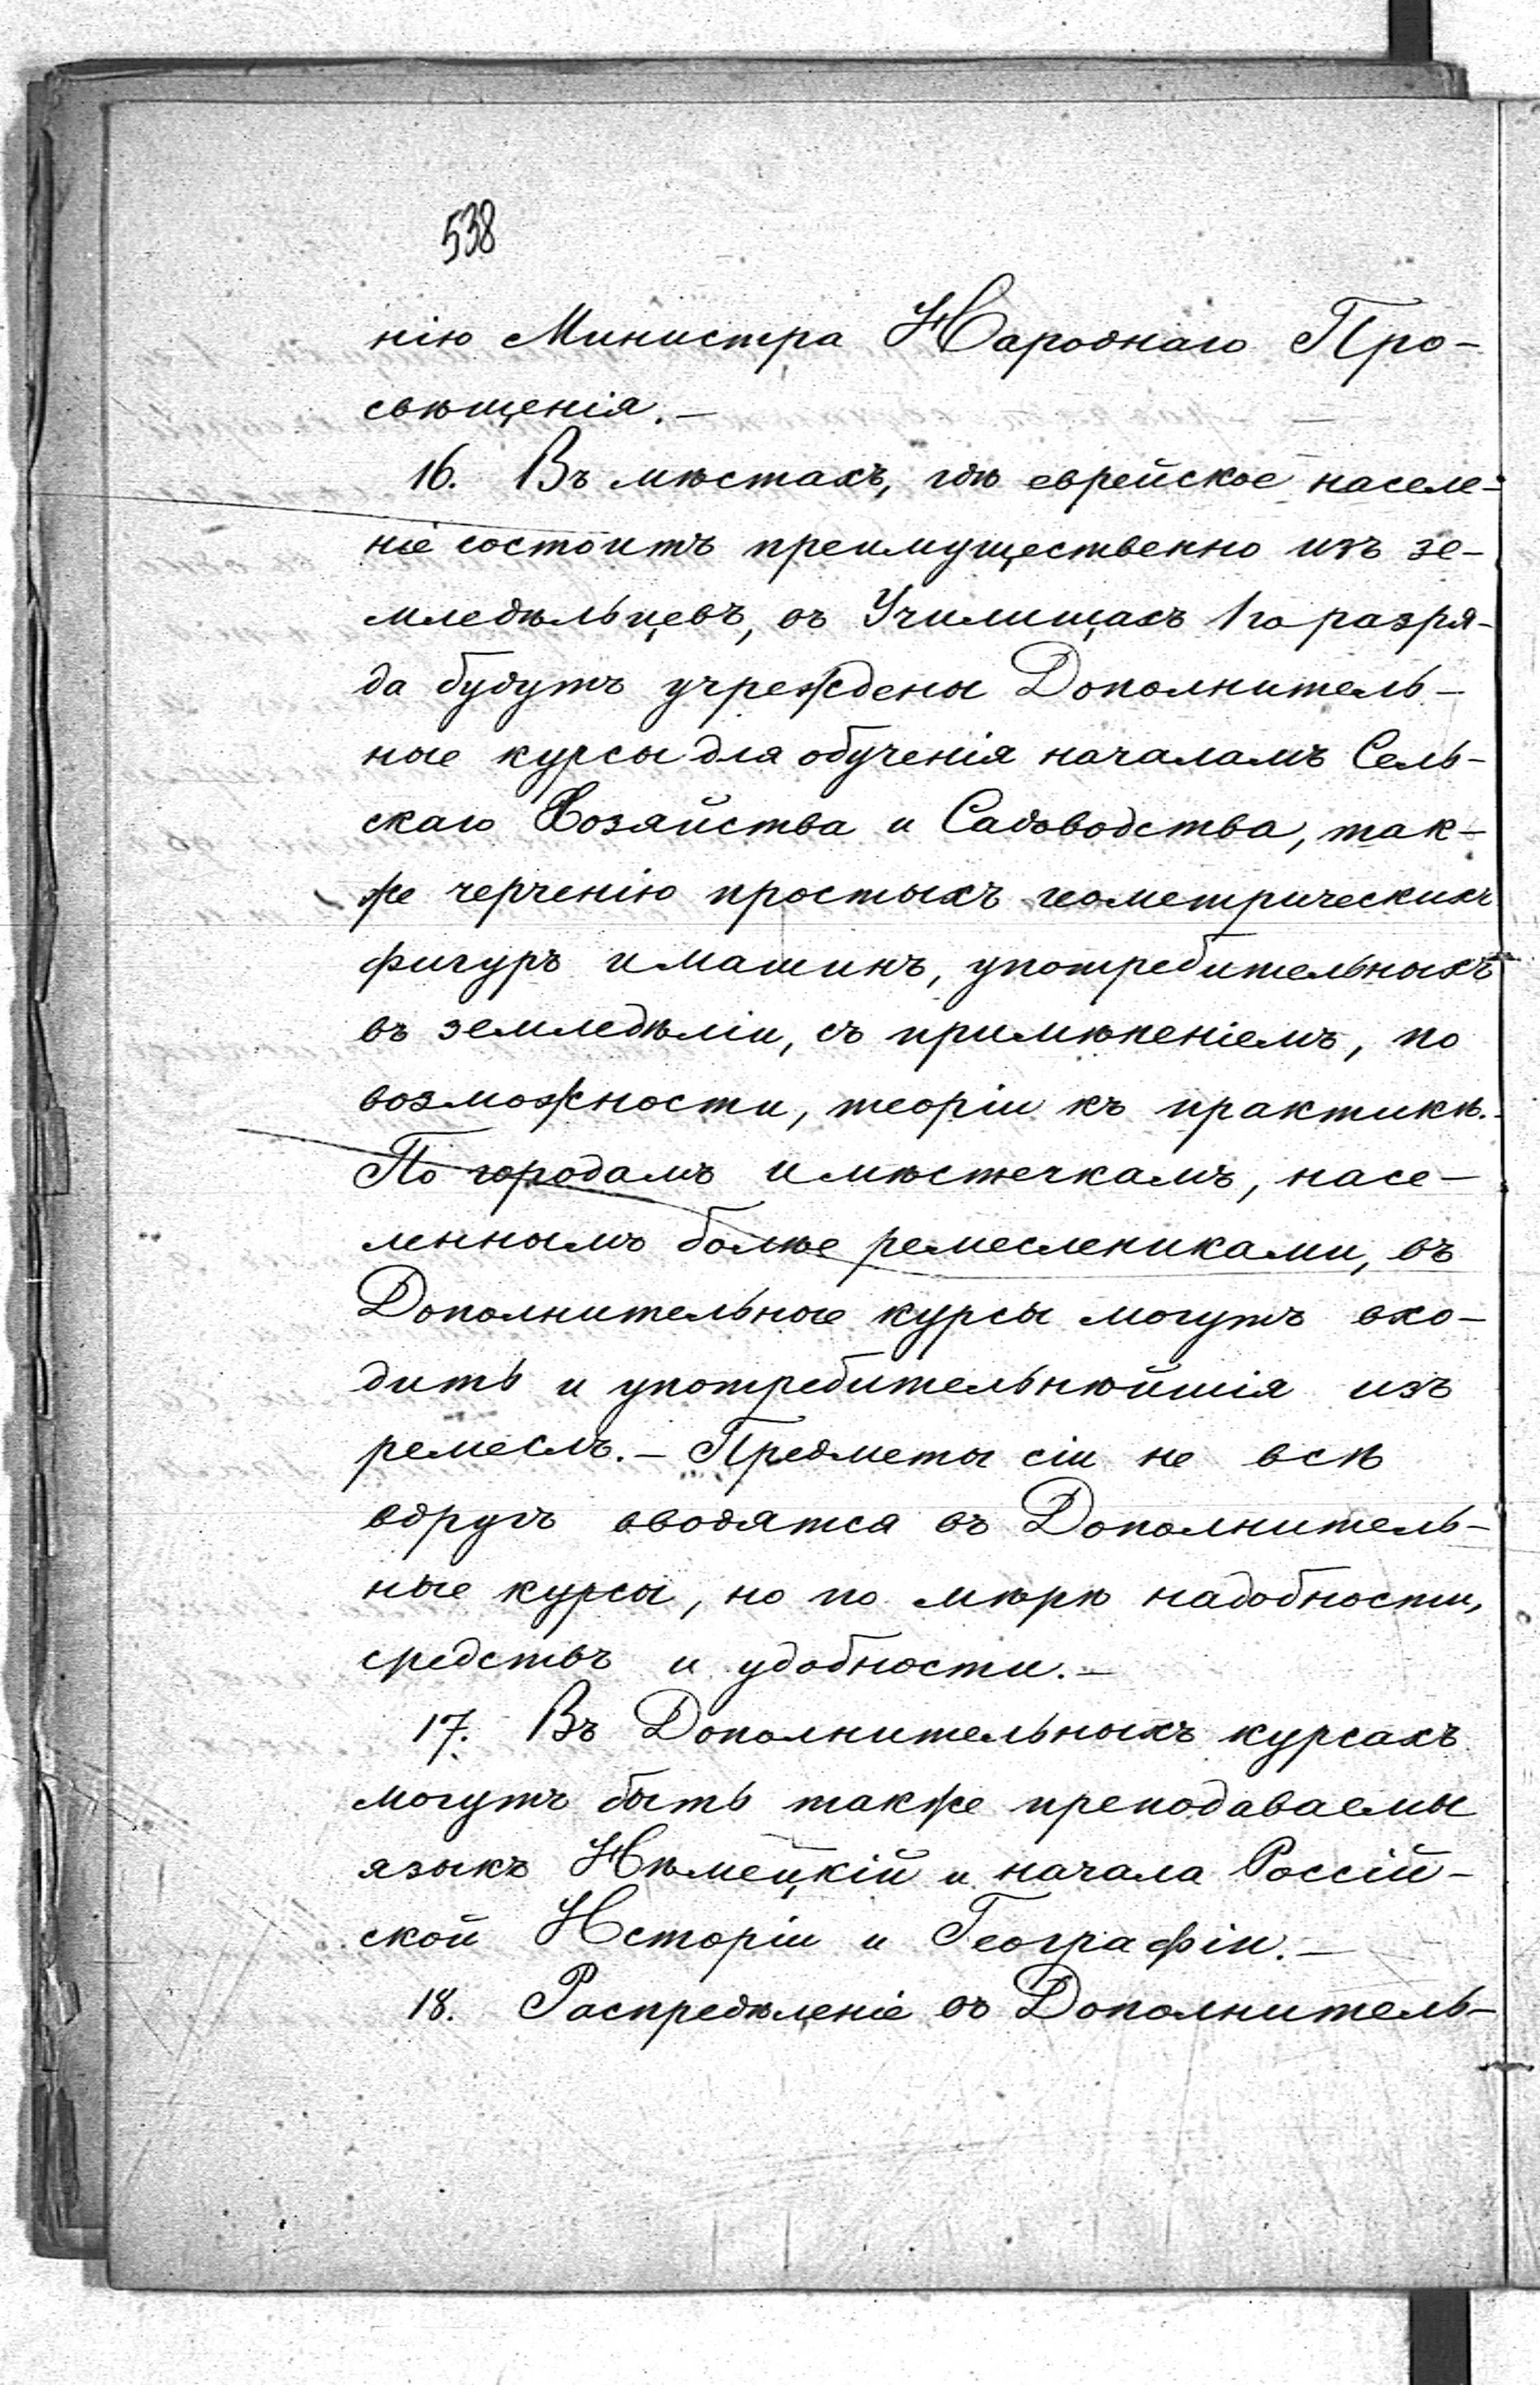 538
нію Министра Народнаго Про-
свѣщенія.—
16. Въ мѣстахъ, гдѣ еврейское населе-
ніе состоитъ преимущественно изъ зе-
мледѣльцевъ, въ Училищахъ 1го разря-
да будутъ учреждены Дополнитель-
ные курсы для обученія началамъ Сель-
скаго Хозяйства и Садоводства, так-
же черченію простыхъ геометрическихъ
фигуръ и машинъ, употребительныхъ
въ земледѣліи, съ примѣненіемъ, по
возможности, теоріи къ практикѣ.
По городамъ и мѣстечкамъ, насе-
леннымъ болѣе ремеслениками, въ
Дополнительные курсы могутъ вхо-
дить и употребительнѣйшія изъ
ремеслъ.— Предметы сіи не всѣ
вдругъ вводятся въ Дополнитель-
ные курсы, но по мѣрѣ надобности,
средствъ и удобности.—
17. Въ Дополнительныхъ курсахъ
могутъ быть также преподаваемы
языкъ Нѣмецкій и начала Россій-
ской Исторіи и Географіи.—
18. Распредѣленіе въ Дополнитель-